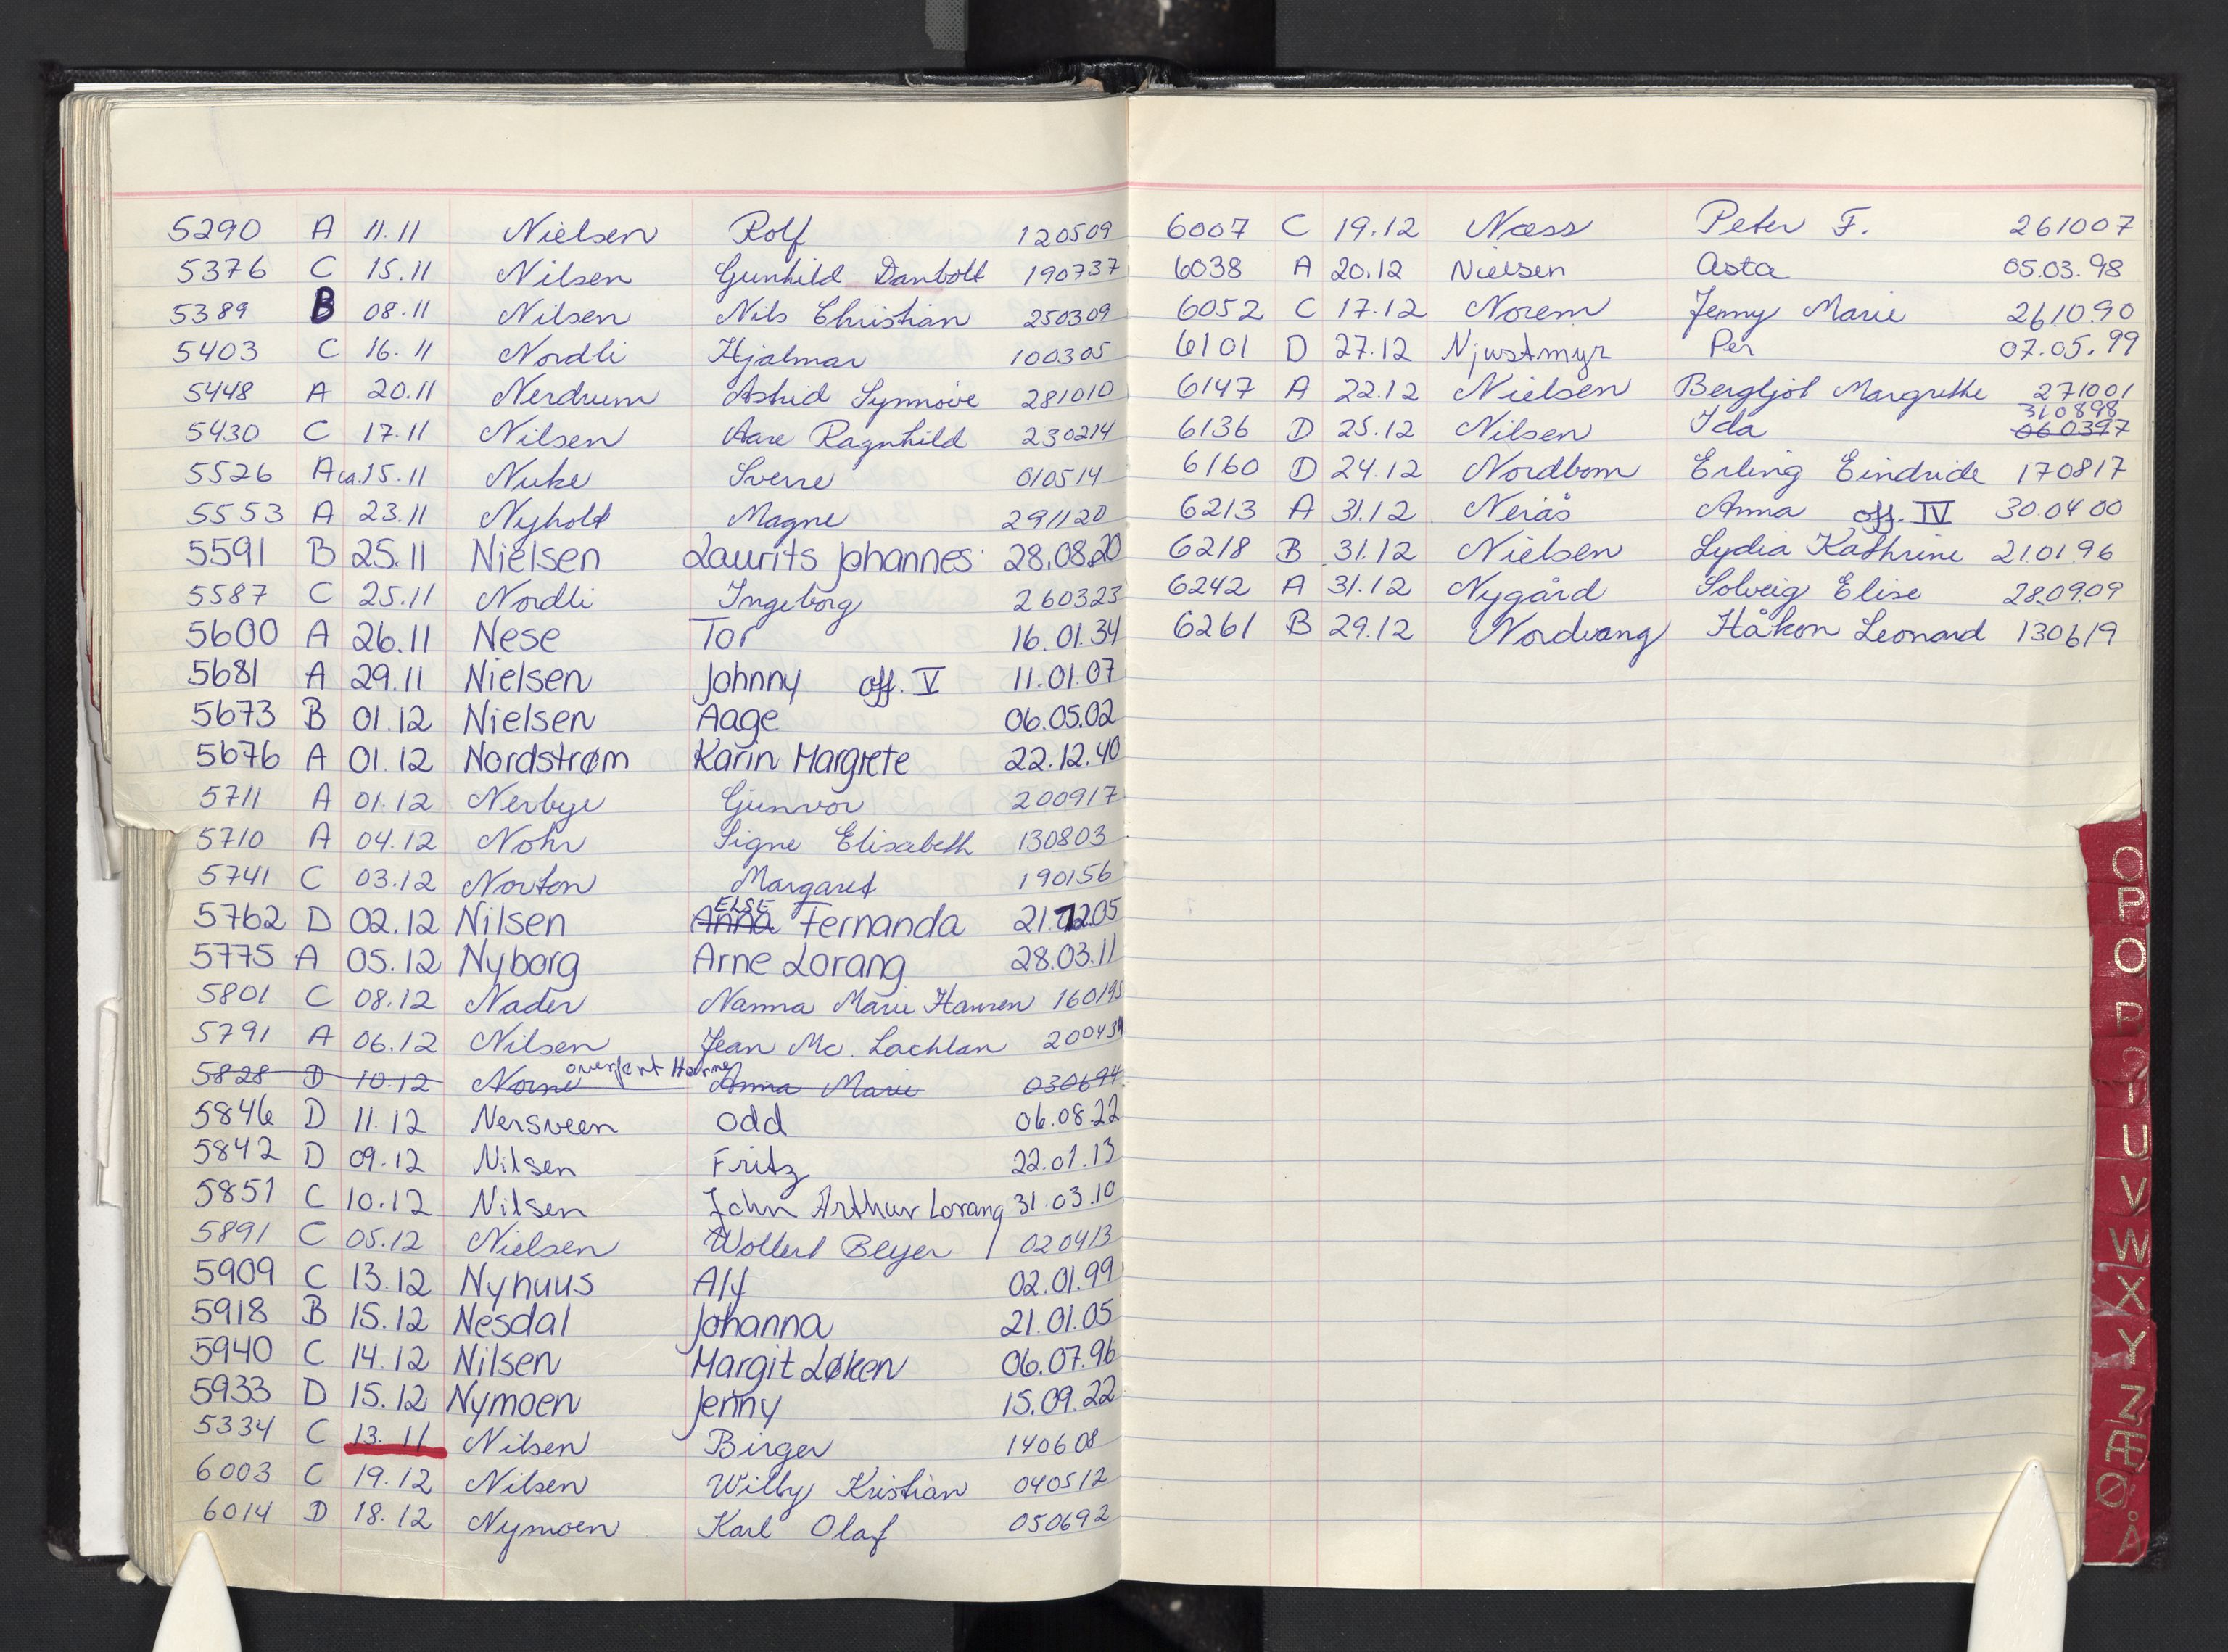 5290 A 11.11 Nielsen Rolf 120509
5376 C 15.11 Nilsen Gunhild Danbolt 190737
5389 B 08.11 Nilsen Nils Christian 250309
5403 C 16.11 Nordli Hjalmar 100305
5448 A 20.11 Nerdrum Astrid Synnøve 281010
5430 C 17.11 Nilsen Aase Ragnhild 230214
5526 A ca.15.11 Nuke Sverre 010514
5553 A 23.11 Nyholt Magne 291120
5591 B 25.11 Nielsen Laurits Johannes 28.08.20
5587 C 25.11 Nordli Ingeborg 260323
5600 A 26.11 Nese Tor 16.01.34
5681 A 29.11 Nielsen Johnny off. V 11.01.07
5673 B 01.12 Nielsen Aage 06.05.02
5676 A 01.12 Nordstrøm Karin Margrete 22.12.40
5711 A 01.12 Nerbye Gunvor 200917
5710 A 04.12 Nohr Signe Elisabeth 130803
5741 C 03.12 Norton Margaret 190156
ELSE
5762 D 02.12 Nilsen Anna Fernanda 21.12.05
5775 A 05.12 Nyborg Arne Lorang 28.03.11
5801 C 08.12 Nader Nanna Marie Hansen 160195
5791 A 06.12 Nilsen Jean Mc. Lachlan 200434
overført Horne
5828 D 10.12 Norne Anna Marie 030694
5846 D 11.12 Nersveen Odd 06.08.22
5842 D 09.12 Nilsen Fritz 22.01.13
5851 C 10.12 Nilsen John Arthur Lorang 31.03.10
5891 C 05.12 Nielsen Wollert Beyer 020413
5909 C 13.12 Nyhuus Alf 02.01.99
5918 B 15.12 Nesdal Johanna 21.01.05
5940 C 14.12 Nilsen Margit Løken 06.07.96
5933 D 15.12 Nymoen Jenny 15.09.22
5334 C 13.11 Nilsen Birger 140608
6003 C 19.12 Nilsen Willy Kristian 040512
6014 D 18.12 Nymoen Karl Olaf 050692
6007 C 19.12 Næss Peter F. 261007
6038 A 20.12 Nielsen Asta 05.03.98
6052 C 17.12 Norem Jenny Marie 261090
6101 D 27.12 Njustmyr Per 07.05.99
6147 A 22.12 Nielsen Bergljot Margrethe 271001
310898
6136 D 25.12 Nilsen Ida 060397
6160 D 24.12 Nordbom Erling Eindride 170817
6213 A 31.12 Nerås Anna off. IV 30.04 00
6218 B 31.12 Nielsen Lydia Kathrine 21.01.96
6242 A 31.12 Nygård Solveig Elise 28.09.09
6261 B 29.12 Nordvang Håkon Leonard 130619
O
P
O
P
U
V
W
X
Y
Z
Æ
Ø
Å